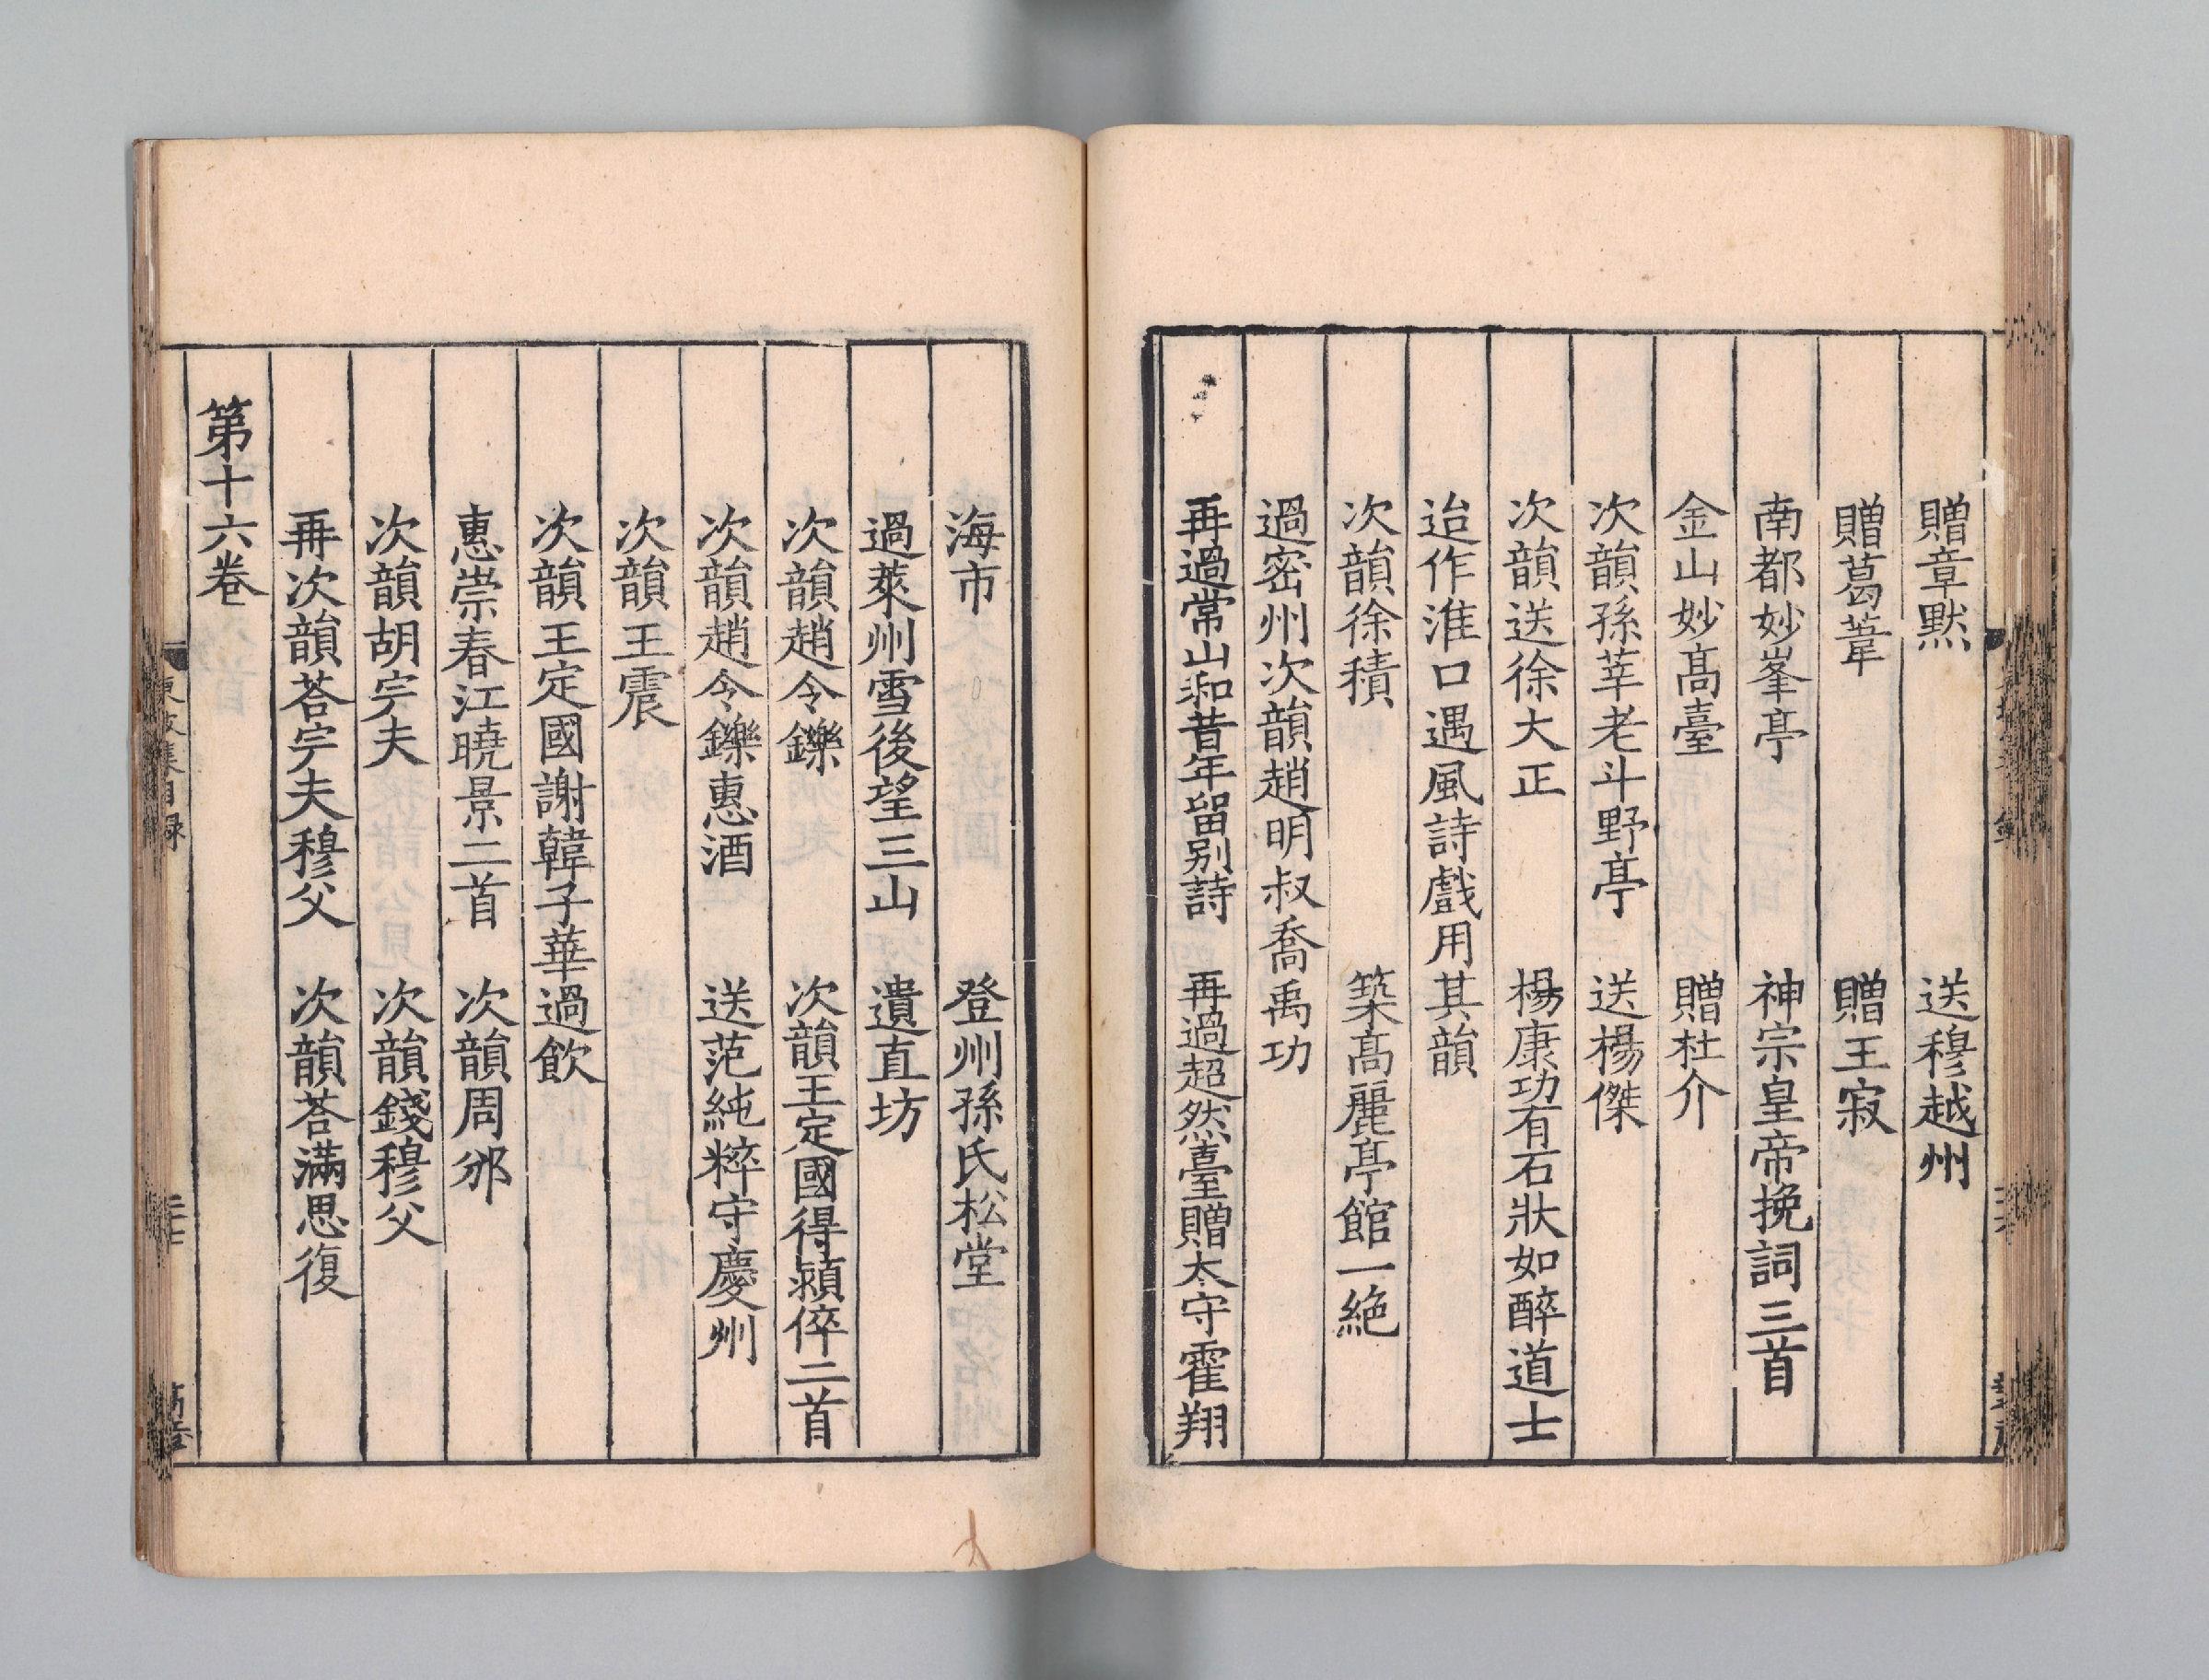 贈章默　送穆越州
贈葛葦　贈王寂
南都妙峯亭　神宗皇帝挽詞三首
金山妙髙臺　贈杜介
次韻孫莘老斗野亭　送楊傑
次韻送徐大正　楊康功有石狀如醉道士
迨作淮口遇風詩戲用其韻
次韻徐積　築髙麗亭館一絶
過密州次韻趙明叔喬禹功
再過常山和昔年留别詩　再過超然臺贈太守霍翔
海市　登州孫氏松堂
過萊州雪後望三山　遺直坊
次韻趙令鑠　次韻王定國得潁倅二首
次韻趙令鑠惠酒　送范純粹守慶州
次韻王震
次韻王定國謝韓子華過飲
惠崇春江曉景二首　次韻周邠
次韻胡完夫　次韻錢穆父
再次韻荅完夫穆父　次韻荅滿思復
第十六卷
東坡集目録